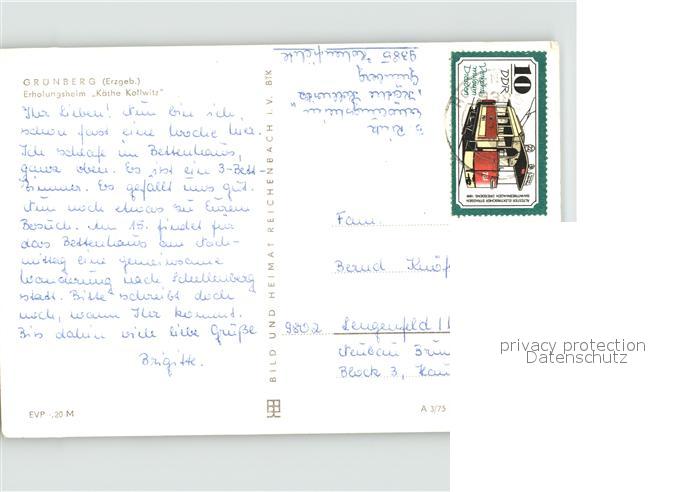 GRÜNBERG (Erzgeb.)
Erholungsheim „Käthe Kollwitz"
Ihr Lieben! Nun bin ich
schon fast eine Woche hier.
Ich schlafe im Bettenhaus,
ganz oben. Es ist ein 3-Bett-
Zimmer. Es gefällt uns gut.
Nun noch etwas zu Eurem
Besuch. Am 15. findet für
das Bettenhaus am Nach-
mittag eine gemeinsame
Wanderung nach Schellenberg
statt. Bitte schreibt doch
noch, wann Ihr kommt.
Bis dahin viele liebe Grüße
Brigitte.
EVP -,20 M
BILD UND HEIMAT REICHENBACH I. V. BTK
A 3/75
"Käthe Kollwitz"
Grünberg
9385
10
DDR
Verkehrs-
museum
Dresden
ÄLTESTER ELEKTRISCHER STRASSEN-
BAHNTRIEBWAGEN, DRESDEN 1896
Fam.
Bernd
9802 Lengenfeld
Neubau
Block 3,
privacy protection
Datenschutz